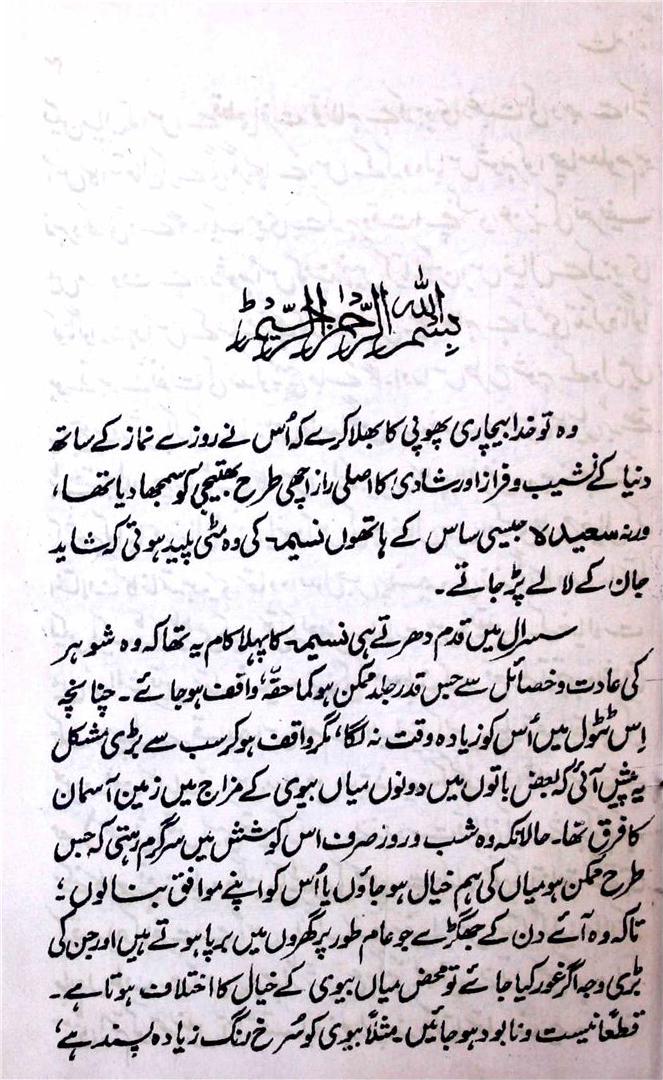 بسم اللہ الرحمن الرحیم
وہ تو خدا بیچاری پھوپی کا بھلا کرے کہ اُس نے روزے نماز کے ساتھ
دنیا کے نشیب و فراز اور شادی کا اصلی راز اچھی طرح بھتیجی کو سمجھا دیا تھا،
ورنہ سعیدہ جیسی ساس کے ہاتھوں نسیمہ کی وہ مٹی پلید ہوتی کہ شاید
جان کے لالے پڑ جاتے۔
سسرال میں قدم دھرتے ہی نسیمہ کا پہلا کام یہ تھا کہ وہ شوہر
کی عادت و خصائل سے جس قدر جلد ممکن ہو کما حقہٗ واقف ہو جائے۔ چنانچہ
اِس ٹٹول میں اُس کو زیادہ وقت نہ لگا، مگر واقف ہو کر سب سے بڑی مشکل
یہ پیش آئی کہ بعض باتوں میں دونوں میاں بیوی کے مزاج میں زمین آسمان
کا فرق تھا۔ حالانکہ وہ شب و روز صرف اس کوشش میں سرگرم رہتی کہ جس
طرح ممکن ہو میاں کی ہم خیال ہو جاؤں یا اُس کو اپنے موافق بنا لوں؛
تاکہ وہ آئے دن کے جھگڑے جو عام طور پر گھروں میں برپا ہوتے ہیں اور جن کی
بڑی وجہ اگر غور کیا جائے تو محض میاں بیوی کے خیال کا اختلاف ہوتا ہے۔
قطعًا نیست و نابود ہو جائیں۔ مثلاً بیوی کو سُرخ رنگ زیادہ پسند ہے،